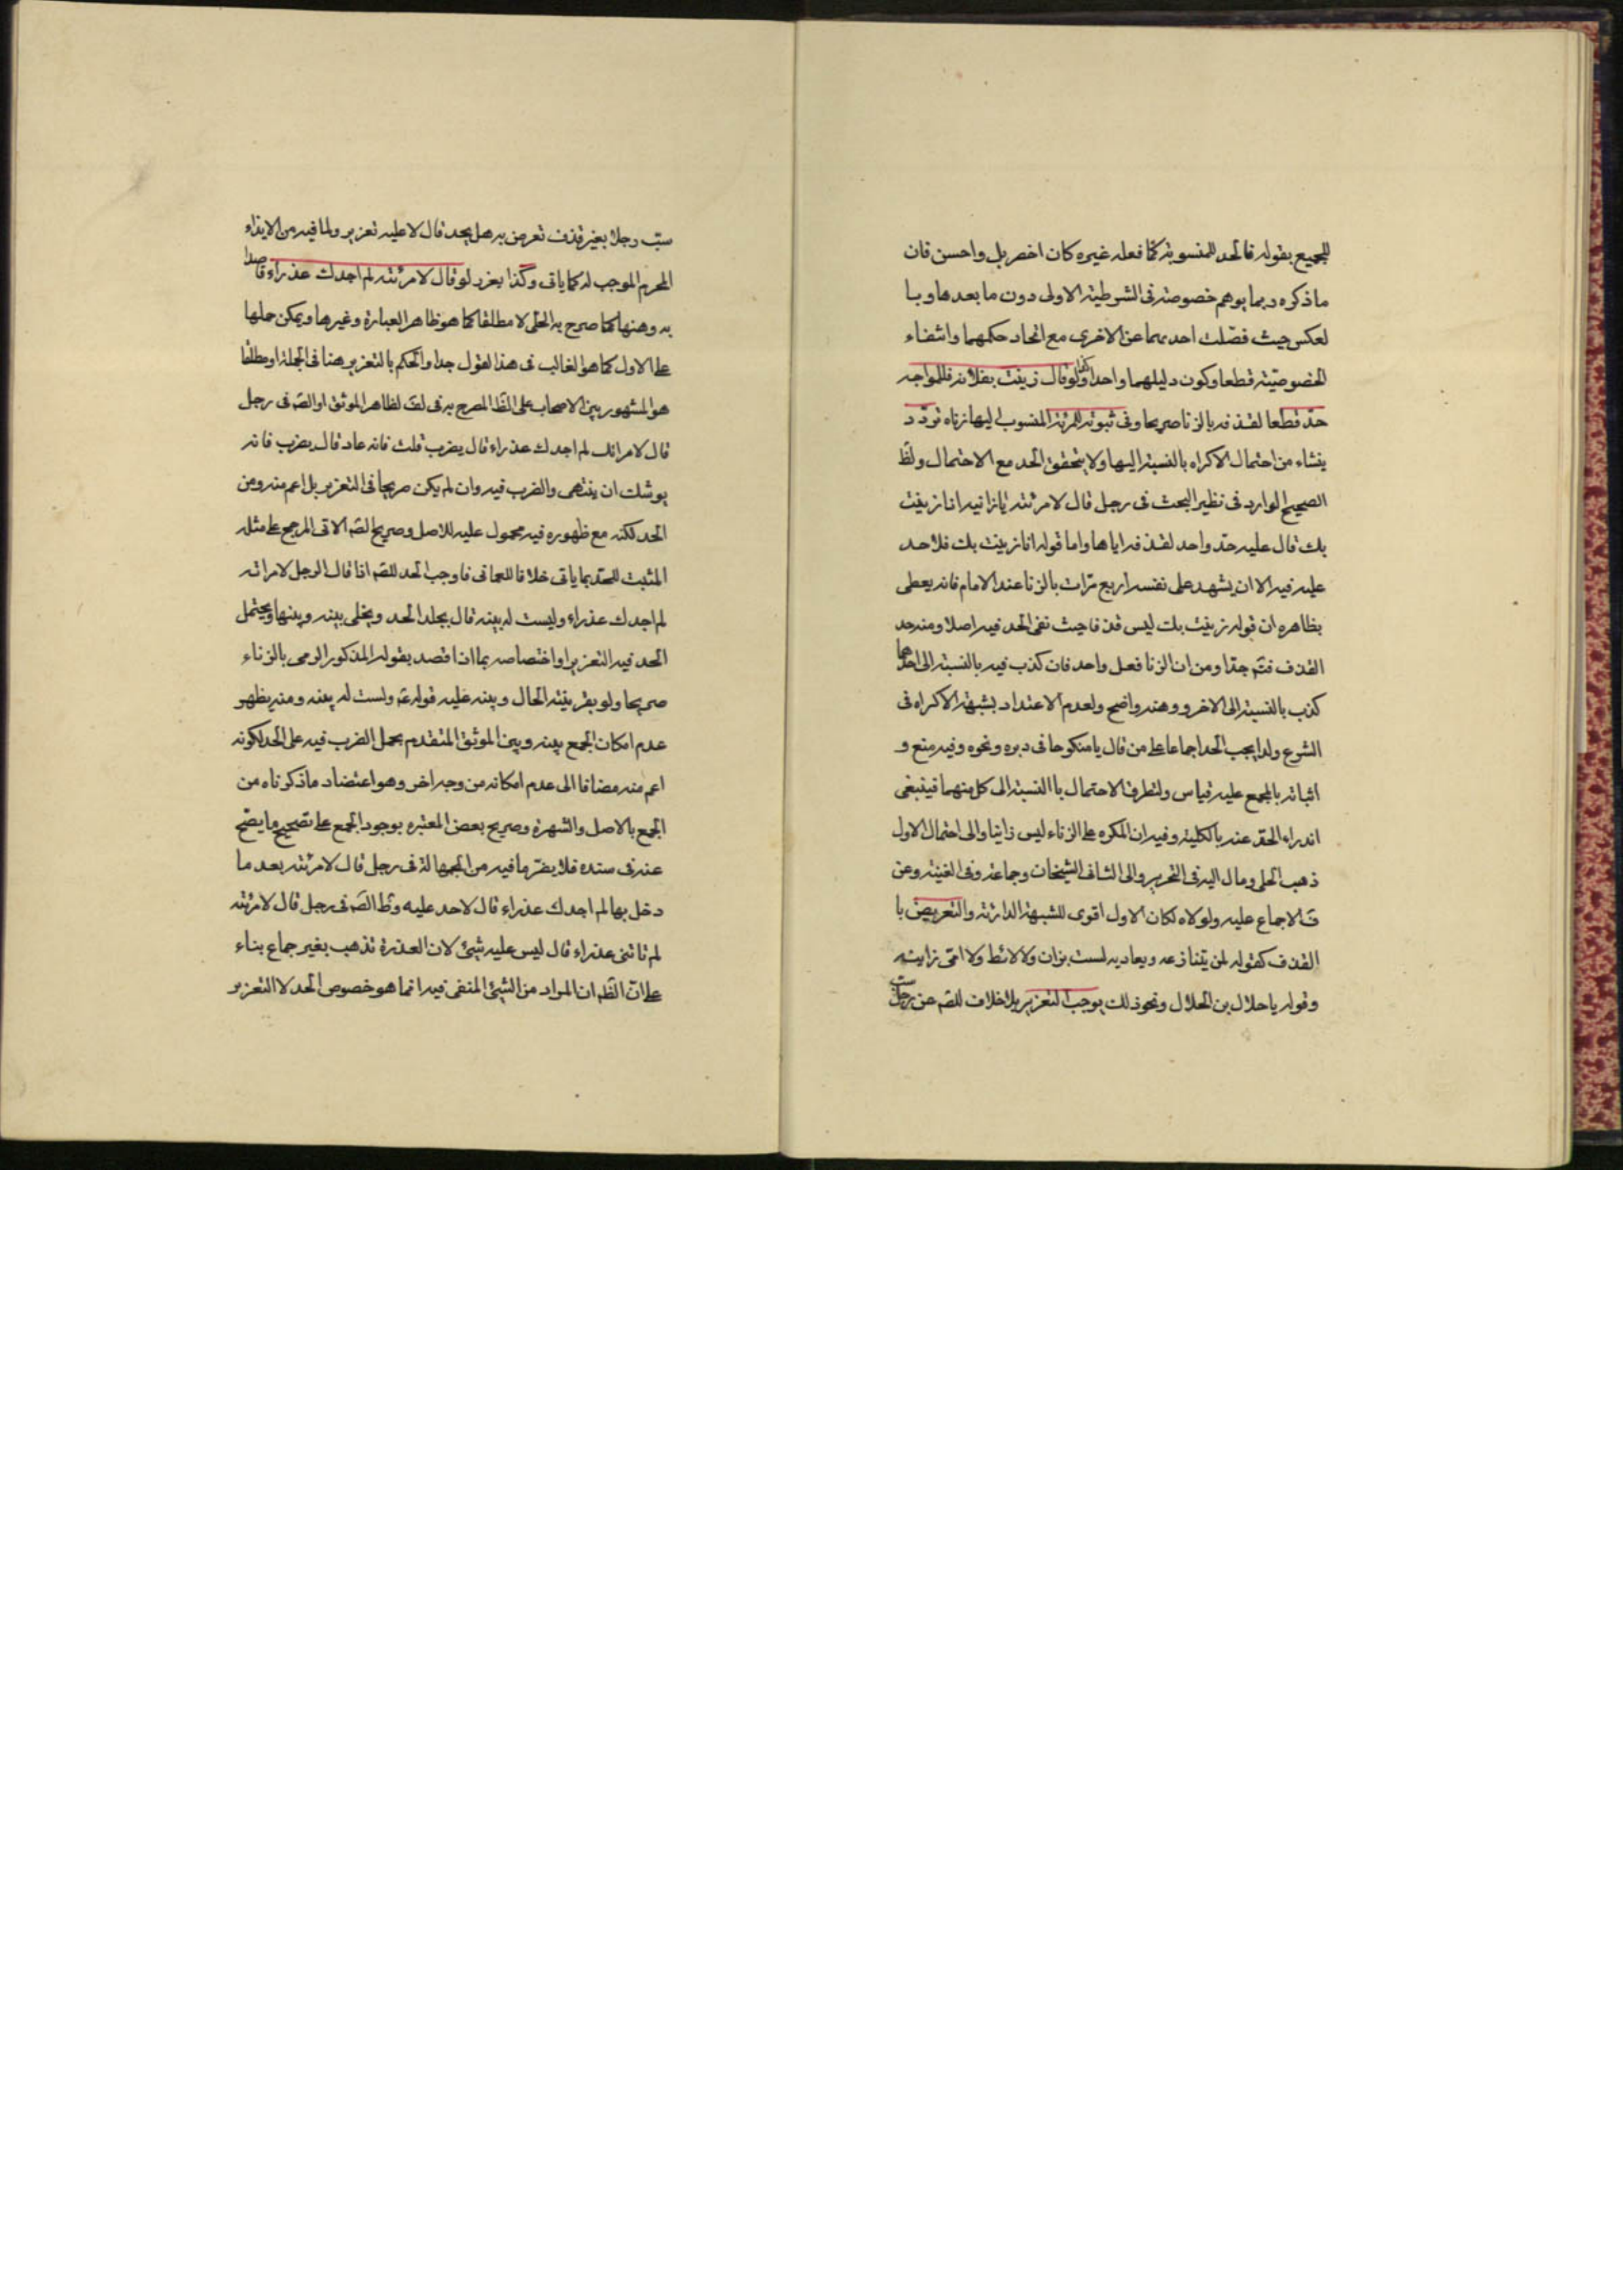 للجميع بقوله فالحد للمنسوبة كما فعله غيره كان اخصر بل واحسن فان
ما ذكره ربما يوهم خصوصته فى الشرطية الاولى دون ما بعدها وبا
لعكس حيث فصّلت احديهما عن الاخرى مع اتحاد حكمهما وانتفاء
الخصوصيّته قطعا وكون دليلهما واحدا وكذا لو قال زنيت بفلانه فللمواجه
حدّ قطعا لقذفه بالزنا صريحا وفى ثبوته للمرئة المنسوب ليها زناه تردّد
ينشاء من احتمال الاكراه بالنسبة اليها ولا يتحقق الحد مع الاحتمال ولظَ
الصحيح الوارد فى نظير البحث فى رجل قال لامرئته يا زانيه انا زنيت
بك قال عليه حدّ واحد لقذفه اياها واما قوله انا زنيت بك فلا حد
عليه فيه الا ان يشهد على نفسه اربع مرّات بالزنا عند الامام فانه يعطى
بظاهره ان قوله زنيت بك ليس قذفا حيث نفى الحد فيه اصلا ومنه حد
القذف فتَم جدّا ومن ان الزنا فعل واحد فان كذب فيه بالنسبة الى احدهما
كذب بالنسبة الى الاخر ووهنه واضح ولعدم الاعتداد بشبهة الاكراه فى
الشرع ولذا يجب الحد اجماعا على من قال يا منكوحا فى دبره ونحوه وفيه منع و
اثباته بالمجمع عليه قياس ولتطرق الاحتمال باالنسبة الى كل منهما فينبغى
اندراء الحدّ عنه بالكلية وفيه ان المكره على الزناء ليس زانيا والى احتمال الاول
ذهب الحلى ومال اليه فى التحرير والى الثانى الشيخان وجماعة وفى الغنيته وعن
فَ الاجماع عليه ولولاه لكان الاول اقوى للشبهة الدارئة والتعريض با
القذف كقوله لمن يتنازعه ويعاديه لست بزان ولا لائط ولا امّى زانيته
وقوله يا حلال بن الحلال ونحو ذلك يوجب التعزير بلا خلاف للصَم عن رجل سبّ
سبّ رجلا بغير قذف تعرض به هل يحد قال لا عليه تعزير ولما فيه من الايذاء
المحرم الموجب له كما ياتى وكذا يعزر لو قال لامرئته لم اجدك عذراء قاصدا
به وهنها كما صرح به الحلى لا مطلقا كما هو ظاهر العبارة وغيرها ويمكن حملها
على الاول كما هو الغالب فى هذا القول جدا والحكم بالتعزير هنا فى الجملة او مطلقا
هو المشهور بين الاصحاب على الظَا المصرح به فى لف لظاهر الموثق او الصَم فى رجل
قال لامراتك لم اجدك عذراء قال يضرب قلت فانه عاد قال يضرب فانه
يوشك ان ينتهى والضرب فيه وان لم يكن صريحا فى التعزير بل اعم منه ومن
الحد لكنه مع ظهوره فيه محمول عليه للاصل وصريح الصَم الاتى المرجح على مثله
المثبت للحدّ بما ياتى خلافا للعمانى فاوجب الحد للصَم اذا قال الرجل لامراته
لم اجدك عذراء وليست له بينه قال يجلد الحد ويخلى بينه وبينها ويحتمل
الحد فيه التعزير او اختصاصه بما اذا قصد بقوله المذكور الرمى بالزناء
صريحا ولو بقرينته الحال وينبه عليه قوله عَم وليست له بينه ومنه يظهر
عدم امكان الجمع بينه وبين الموثق المتقدم بحمل الضرب فيه على الحد لكونه
اعم منه مضافا الى عدم امكانه من وجه اخر وهو اعتضاد ما ذكرناه من
الجمع بالاصل والشهرة وصريح بعض المعتبره بوجود الجمع على تصحيح ما يصَح
عنه فى سنده فلا يضرّ ما فيه من الجهالة فى رجل قال لامرئته بعد ما
دخل بها لم اجدك عذراء قال لا حد عليه وظَ الصَم فى رجل قال لامرئته
لم تاتنى عذراء قال ليس عليه شيئ لان العذرة تذهب بغير جماع بناء
على انّ الظَم ان المراد من الشيئ المنفى فيه انما هو خصوص الحد لا التعزير